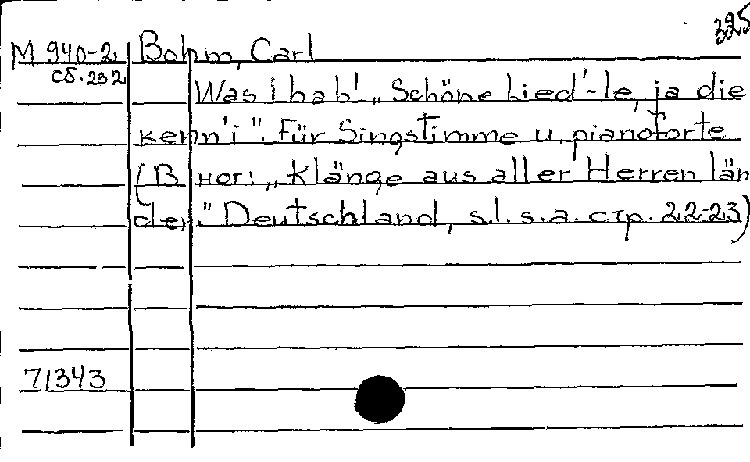 325
M 940-2 Bohm, Carl
сб. 282
Was i hab'! „Schöne Lied'-le, ja die
kenn'i". Für Singstimme u. pianoforte
(В нот: „Klänge aus aller Herren län
der." Deutschland, s.l. s.a. стр. 22-23)
71343